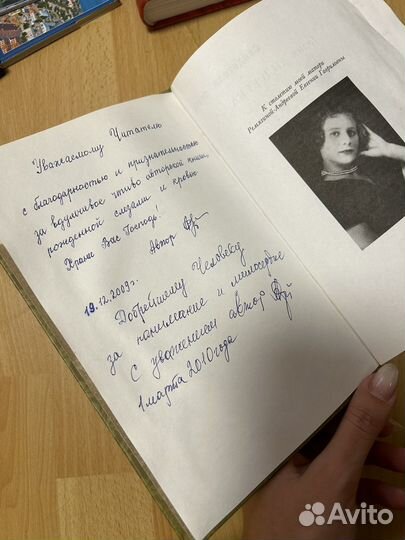 Уважаемому Читателю
с благодарностью и признательностью
за вдумчивое чтиво авторской книги,
рождённой слезами и кровью
Храни Вас Господь!
Автор
19.12.2009г.
Добрейшему Человеку
за понимание и милосердие
С уважением автор
1 марта 2010 года
К столетию моей матери
Евгении Гавриловны
Avito